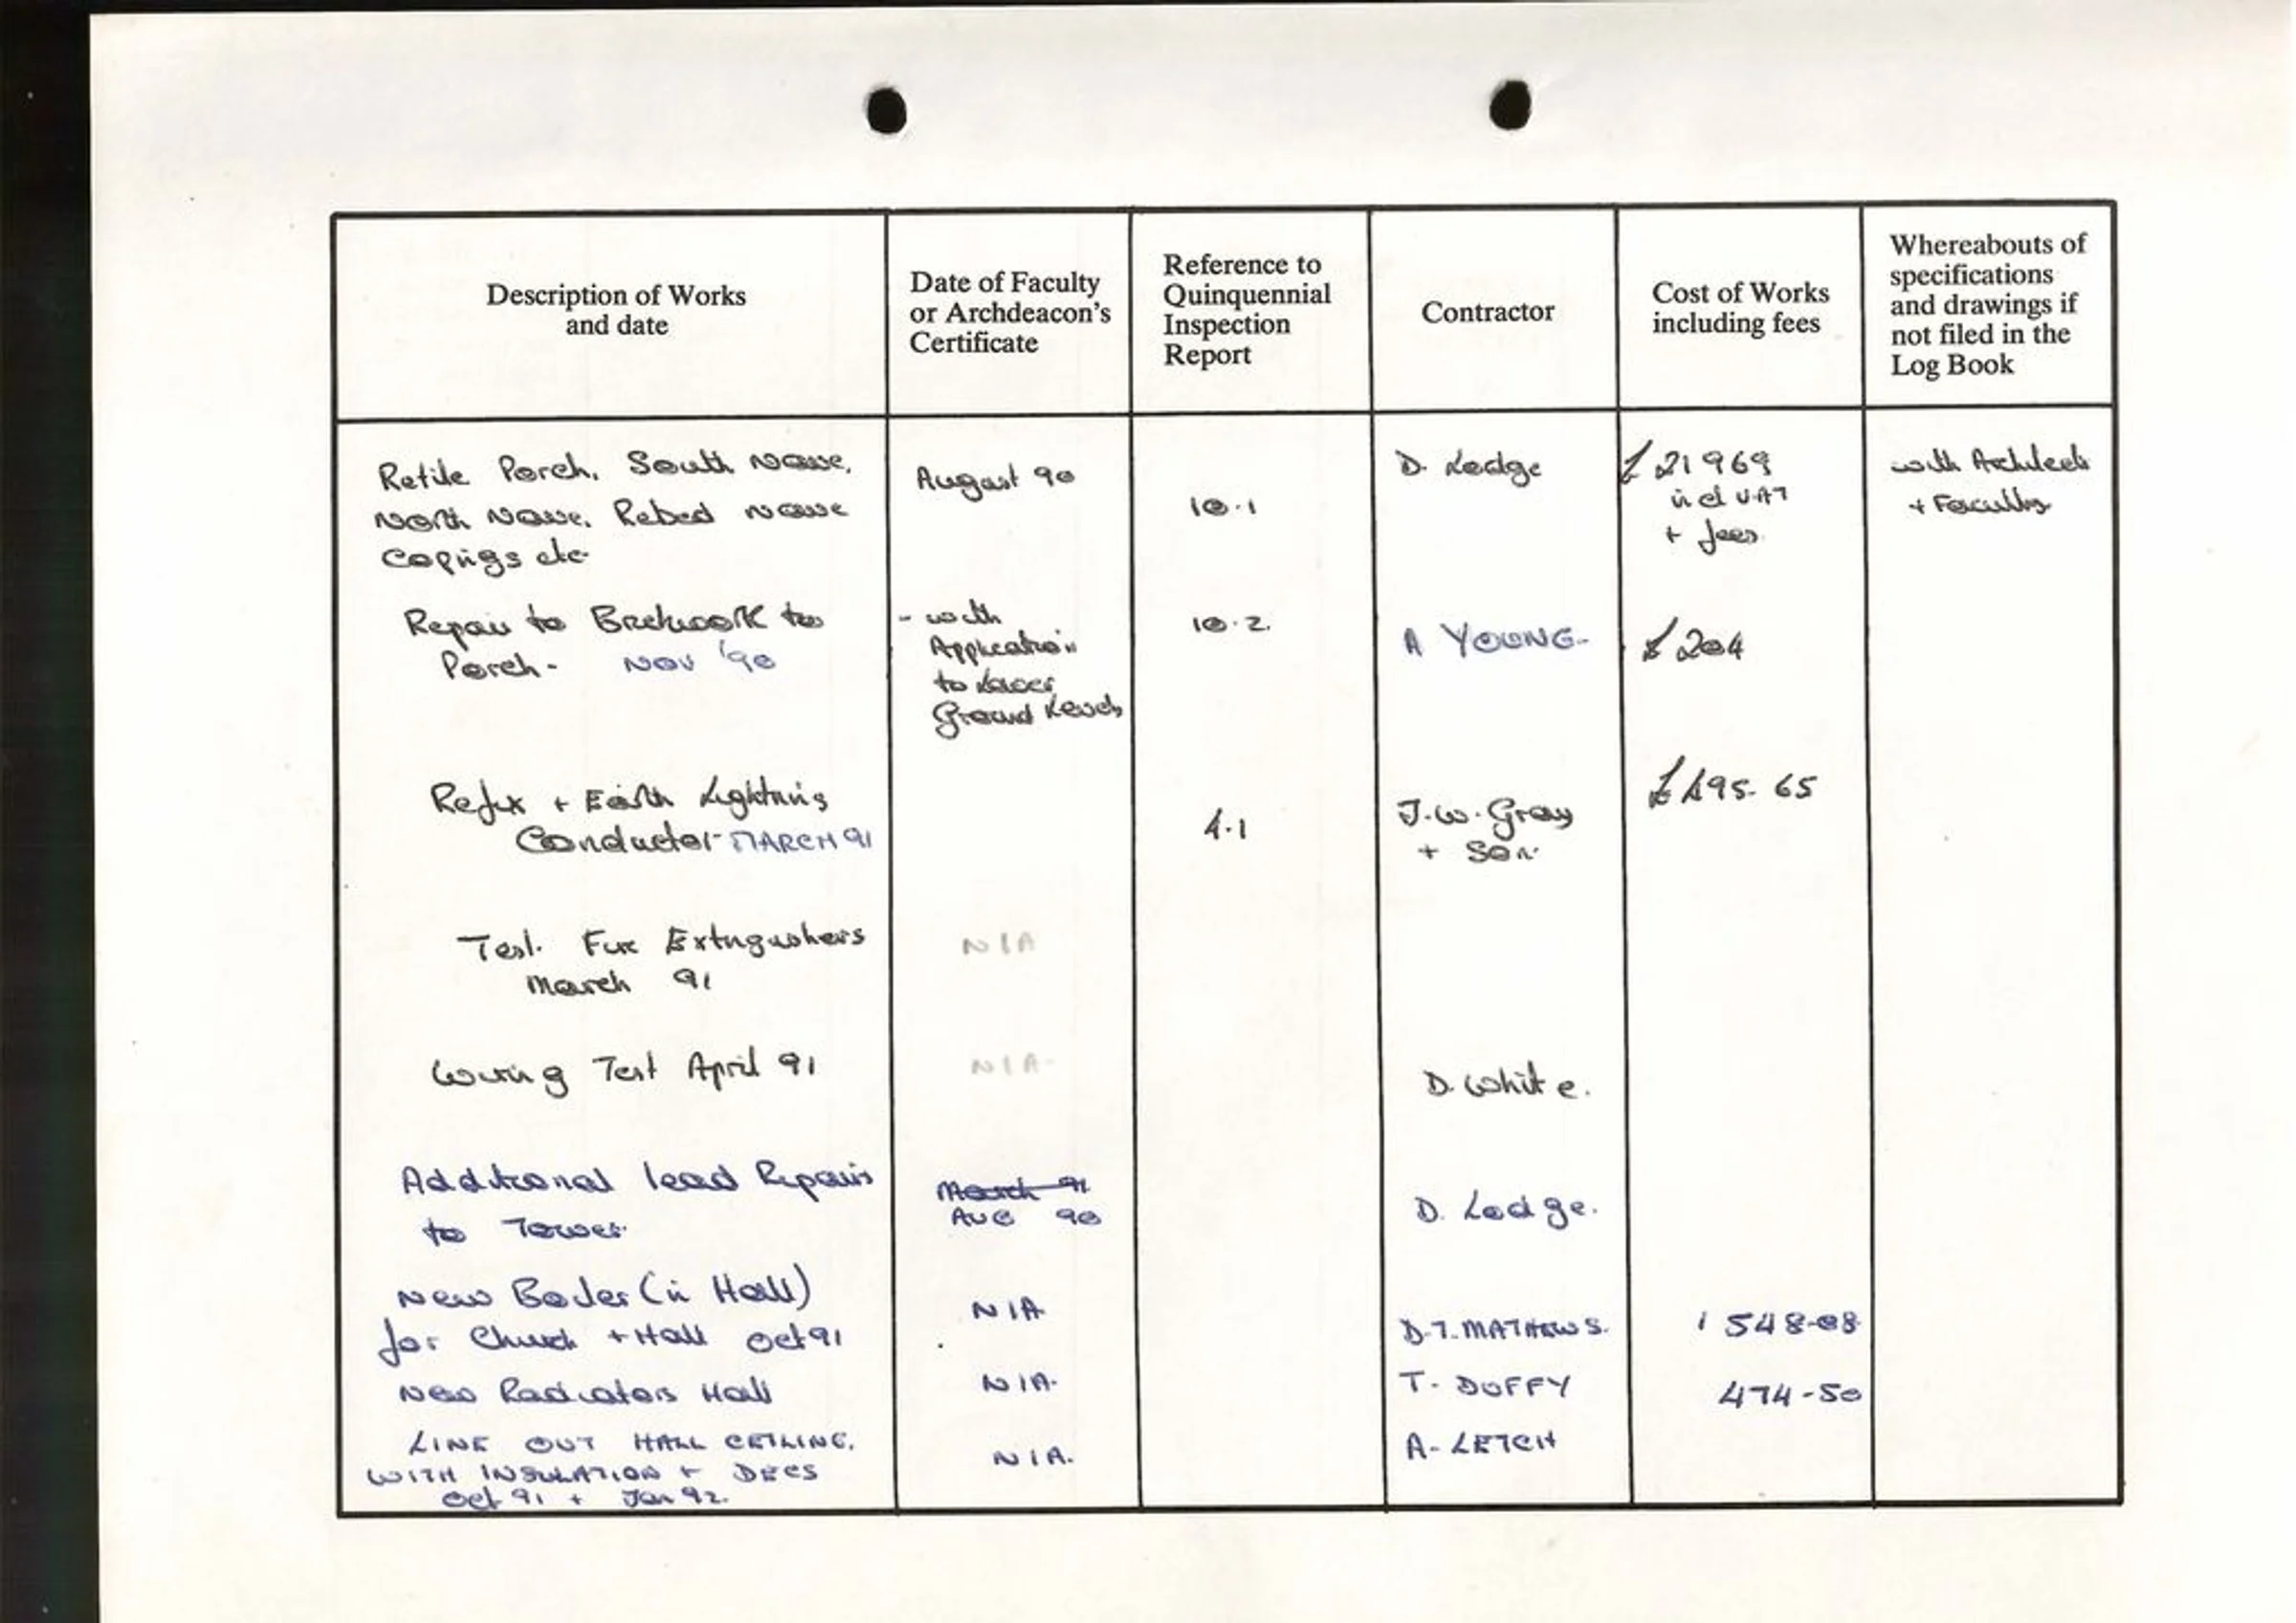 Description of Works
and date
Date of Faculty
or Archdeacon's
Certificate
Reference to
Quinquennial
Inspection
Report
Contractor
Cost of Works
including fees
Whereabouts of
specifications
and drawings if
not filed in the
Log Book
Retile Porch. South Nave,
North Nave. Rebed nave
Copings etc
August 90
10.1
D. Lodge
£21969
incl VAT
+ fees
with Architect
+ Faculty
Repair to Brickwork to
Porch - NOV '90
- with
Application
to Lower
Ground Levels
10.2.
A YOUNG-
£204
Refix + Earth Lightning
Conductor - MARCH 91
4.1
J.W. Gray
+ Son.
£495.65
Test. Fire Extinguishers
March 91
N/A
Wiring Test April 91
N/A-
D. White.
Additional lead Repairs
to Tower.
March 91
AUG 90
D. Lodge.
New Boiler (in Hall)
for Church + Hall Oct 91
N/A
D.T. MATHEWS.
1 548-08
New Radiators Hall
N/A.
T. DUFFY
474-50
LINE OUT HALL CEILING.
WITH INSULATION + DECS
Oct 91 + Jan 92.
N/A.
A- LETCH